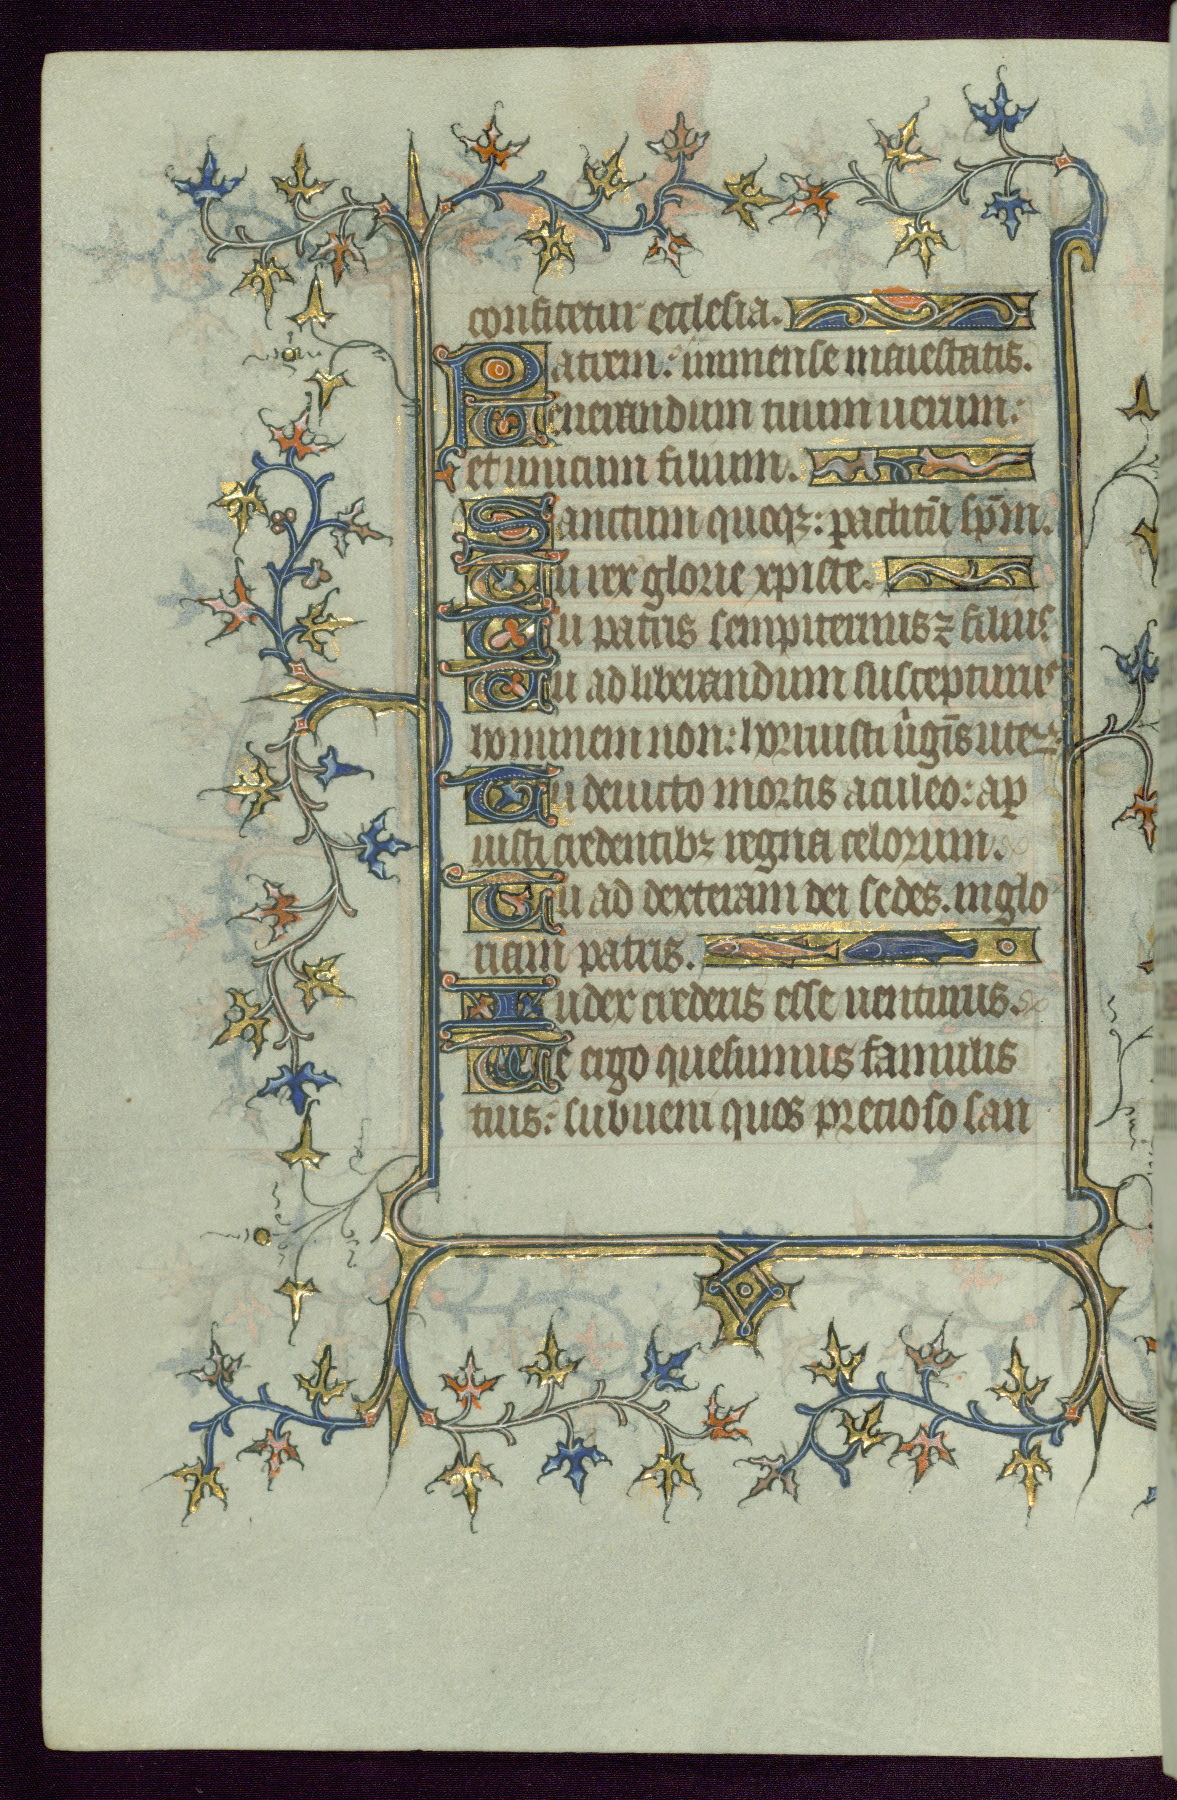 confitetur ecclesia.
Patrem: immense maiestatis.
Uenerandum tuum uerum:
et unicum filium.
Sanctum quoqꝫ: paclitū sp̄m.
Tu rex glorie xpicte.
Tu patris sempiternus ꝫ filius.
Tu ad liberandum suscepturus
hominem non: horruisti uͥgīs uteꝝ
Tu deuicto mortis aculeo: ap
uisti credentibꝫ regna celorum.
Tu ad dexteram dei sedes. in glo
riam patris.
Iudex crederis esse uenturus.
Te ergo quesumus famulis
tuis: subueni quos precioso san